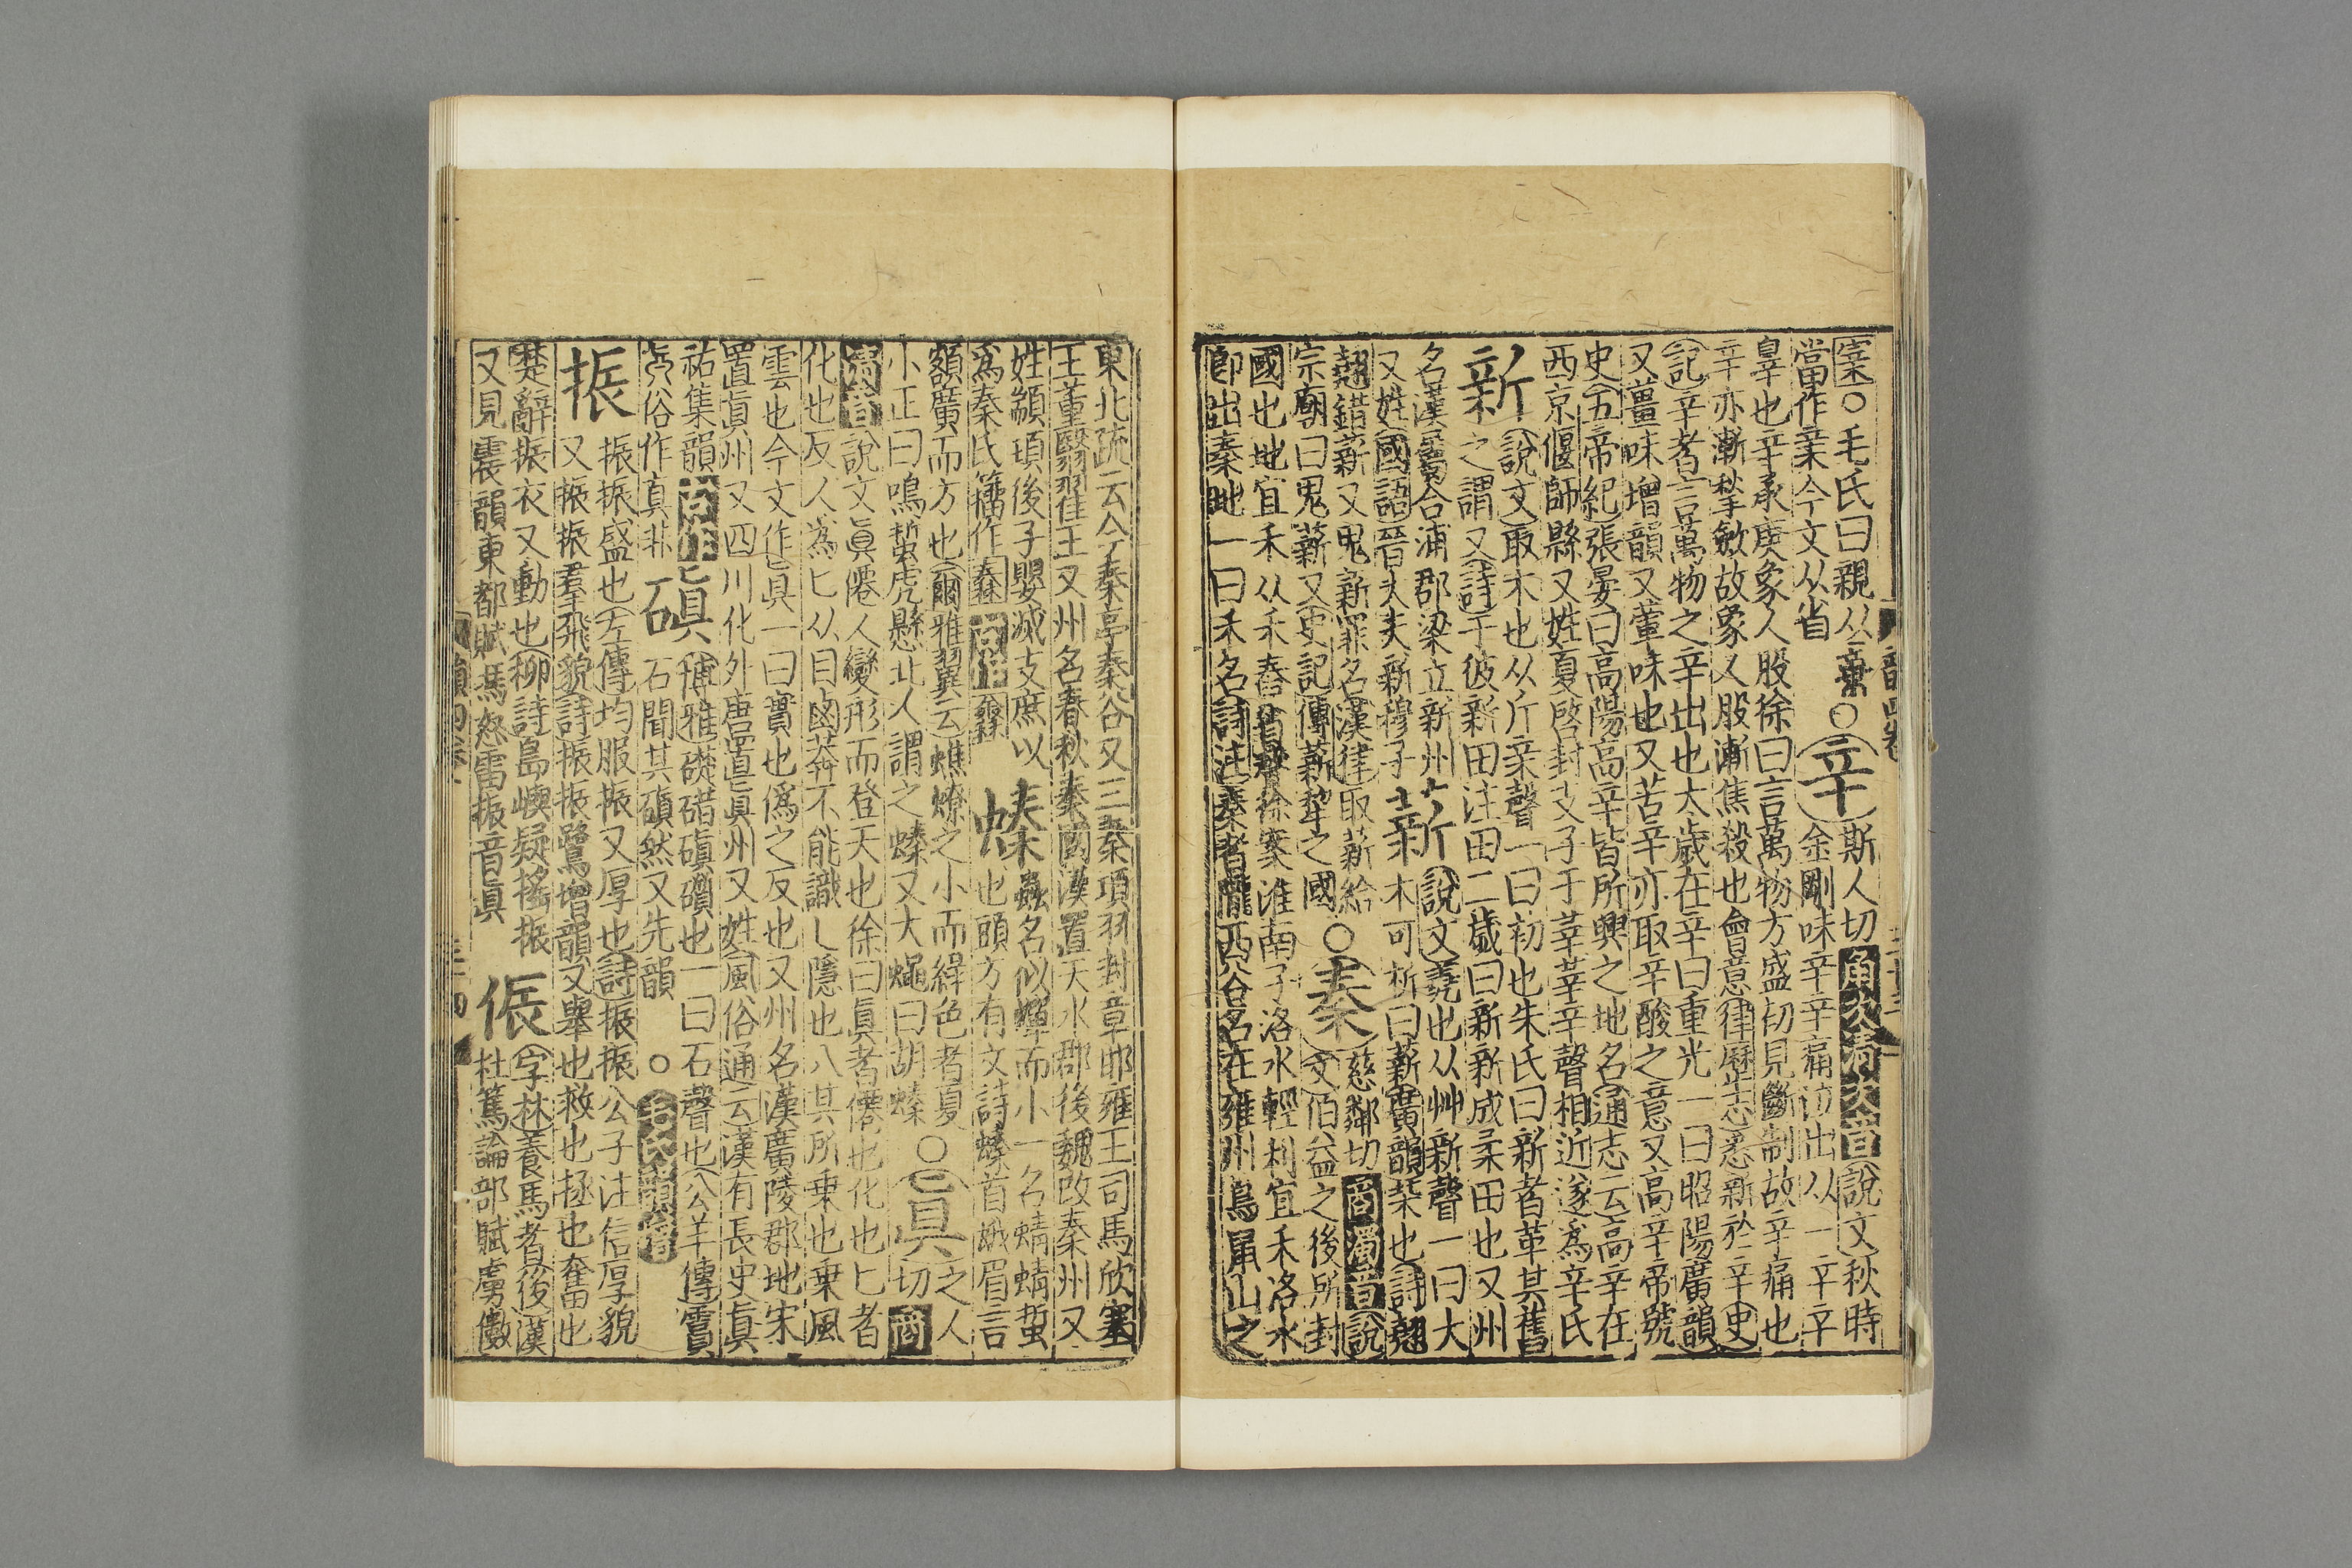 寀○毛氏曰親从亲○辛斯人切角次淸次音說文秋時
當作亲今文从省金剛味辛辛痛泣出从一辛辛
辠也辛承庚象人股徐曰言萬物方盛切見斷制故辛痛也
辛亦漸揫斂故象人股漸焦殺也會意律歷志悉新於辛史
記辛者言萬物之辛出也太歲在辛曰重光一曰昭陽廣韻
又薑味增韻又葷味也又苦辛亦取辛酸之意又高辛帝號
史五帝紀張晏曰高陽高辛皆所興之地名通志云高辛在
西京偃師縣又姓夏啓封支子于莘莘辛聲相近遂爲辛氏
新說文取木也从斤亲聲一曰初也朱氏曰新者革其舊
之謂又詩于彼新田注田二歲曰新新成柔田也又州
名漢屬合浦郡梁立新州薪說文蕘也从艸新聲一曰大
又姓國語晉大夫新穆子木可析曰薪廣韻柴也詩翹
翹錯薪又鬼薪罪名漢律取薪給○秦慈鄰切商濁音說
宗廟曰鬼薪又史記傳薪犂之國文伯益之後所封
國也地宜禾从禾舂省聲徐案淮南子洛水輕利宜禾洛水
卽出秦地一曰禾名詩注秦者隴西谷名在雍州鳥鼠山之
東北疏云今秦亭秦谷又三秦項羽封章邯雍王司馬欣塞
王董翳翟王又州名春秋秦國漢置天水郡後魏改秦州又
姓顓頊後子嬰滅支庶以螓蟲名似蟬而小一名蜻蜻蜇
爲秦氏籒作秦同上也頤方有文詩螓首蛾眉言
額廣而方也爾雅翼云蟭蟟之小而綠色者夏○眞之人
小正曰鳴蜇虎懸北人謂之螓又大蠅曰胡螓切商
淸音說文眞僊人變形而登天也徐曰眞者僊也化也匕者
化也反人爲匕从目鹵莽不能識乚隱也八其所乗也乗風
雲也今文作眞一曰實也僞之反也又州名漢廣陵郡地宋
置眞州又四川化外唐置眞州又姓風俗通云漢有長史眞
祐集韻同上磌博雅礎碏磌礩也一曰石聲也公羊傳霣
眞俗作真非石聞其磌然又先韻○毛氏韻增
振振振盛也左傳均服振又厚也詩振振公子注信厚貌
又振振羣飛貌詩振振鷺增韻又舉也救也拯也奮也
楚辭振衣又動也柳詩島嶼疑搖振侲字林養馬者後漢
又見震韻東都賦馮怒雷振音眞杜篤論部賦虜儌